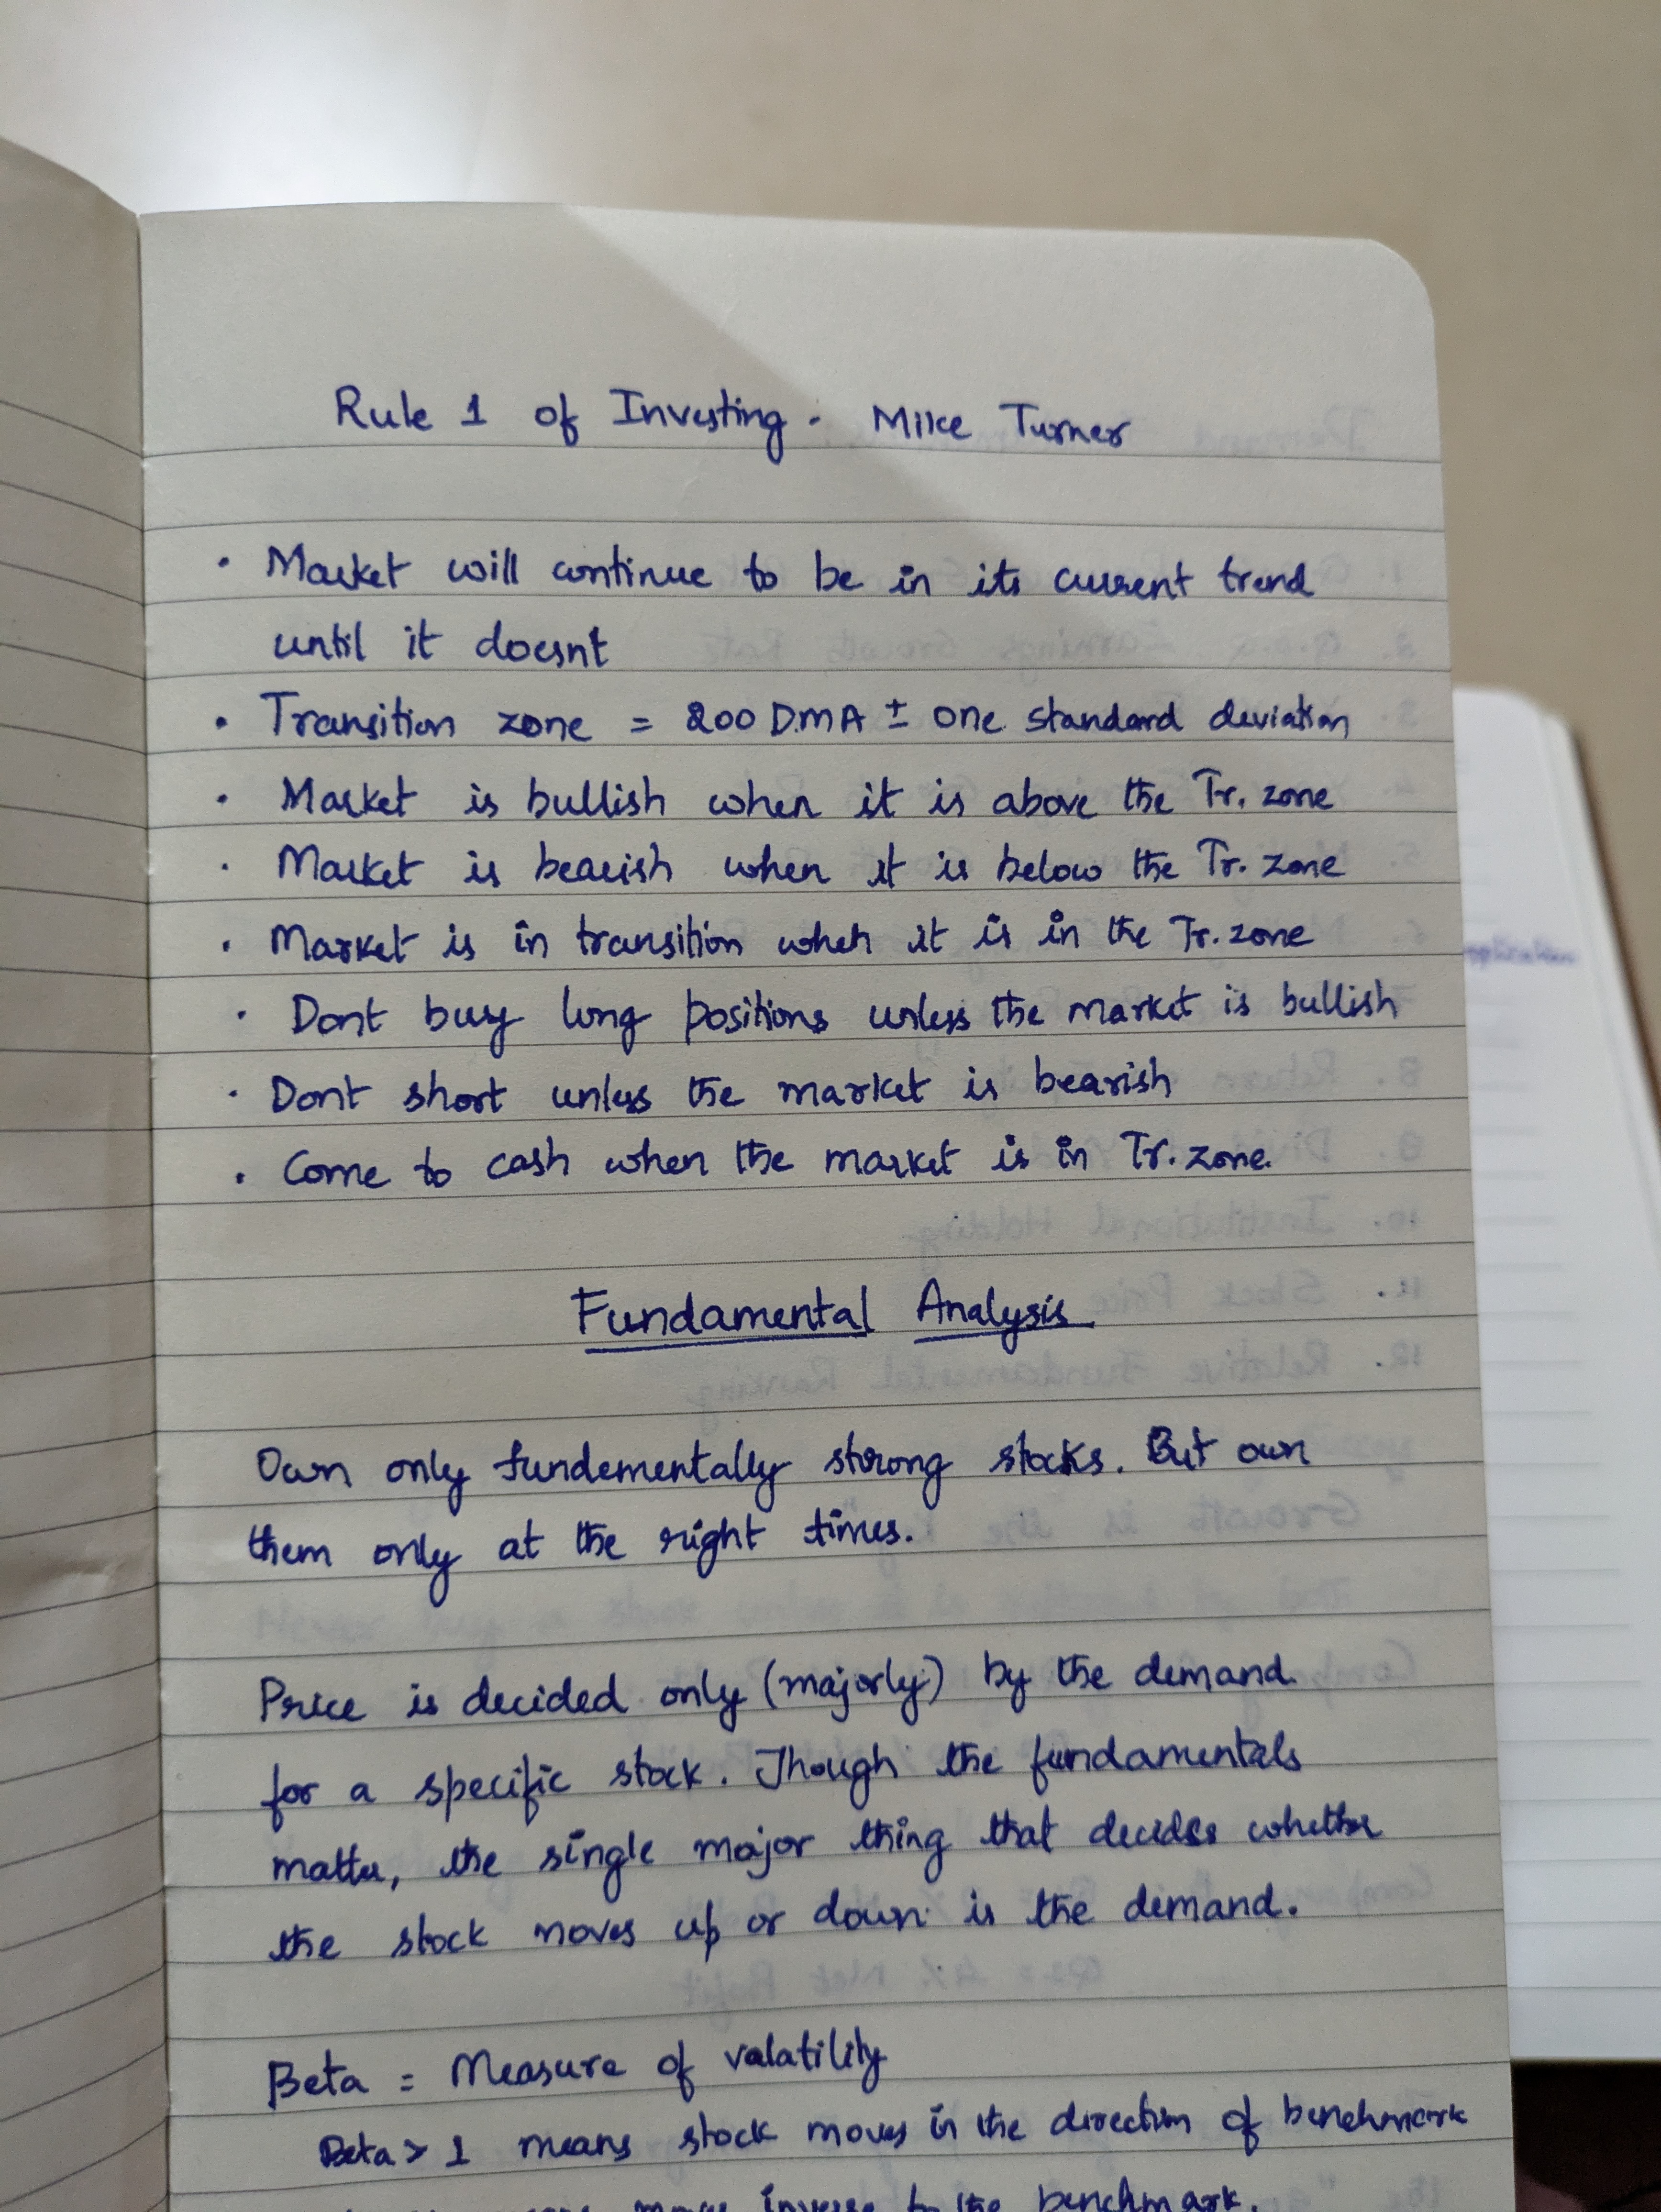 Rule 1 of Investing - Mike Turner
• Market will continue to be in its current trend
until it doesnt
• Transition zone = 200 DMA ± one standard deviation
• Market is bullish when it is above the Tr. zone
• Market is bearish when it is below the Tr. zone
• Market is in transition when it is in the Tr. zone
• Dont buy long positions unless the market is bullish
• Dont short unless the market is bearish
• Come to cash when the market is in Tr. zone.
Fundamental Analysis
Own only fundementally strong stocks. But own
them only at the right times.
Price is decided only (majorly) by the demand
for a specific stock. Though the fundamentals
matter, the single major thing that decides whether
the stock moves up or down is the demand.
Beta = Measure of valatility
Beta > 1 means stock moves in the direction of benchmark
inverse to the benchmark.